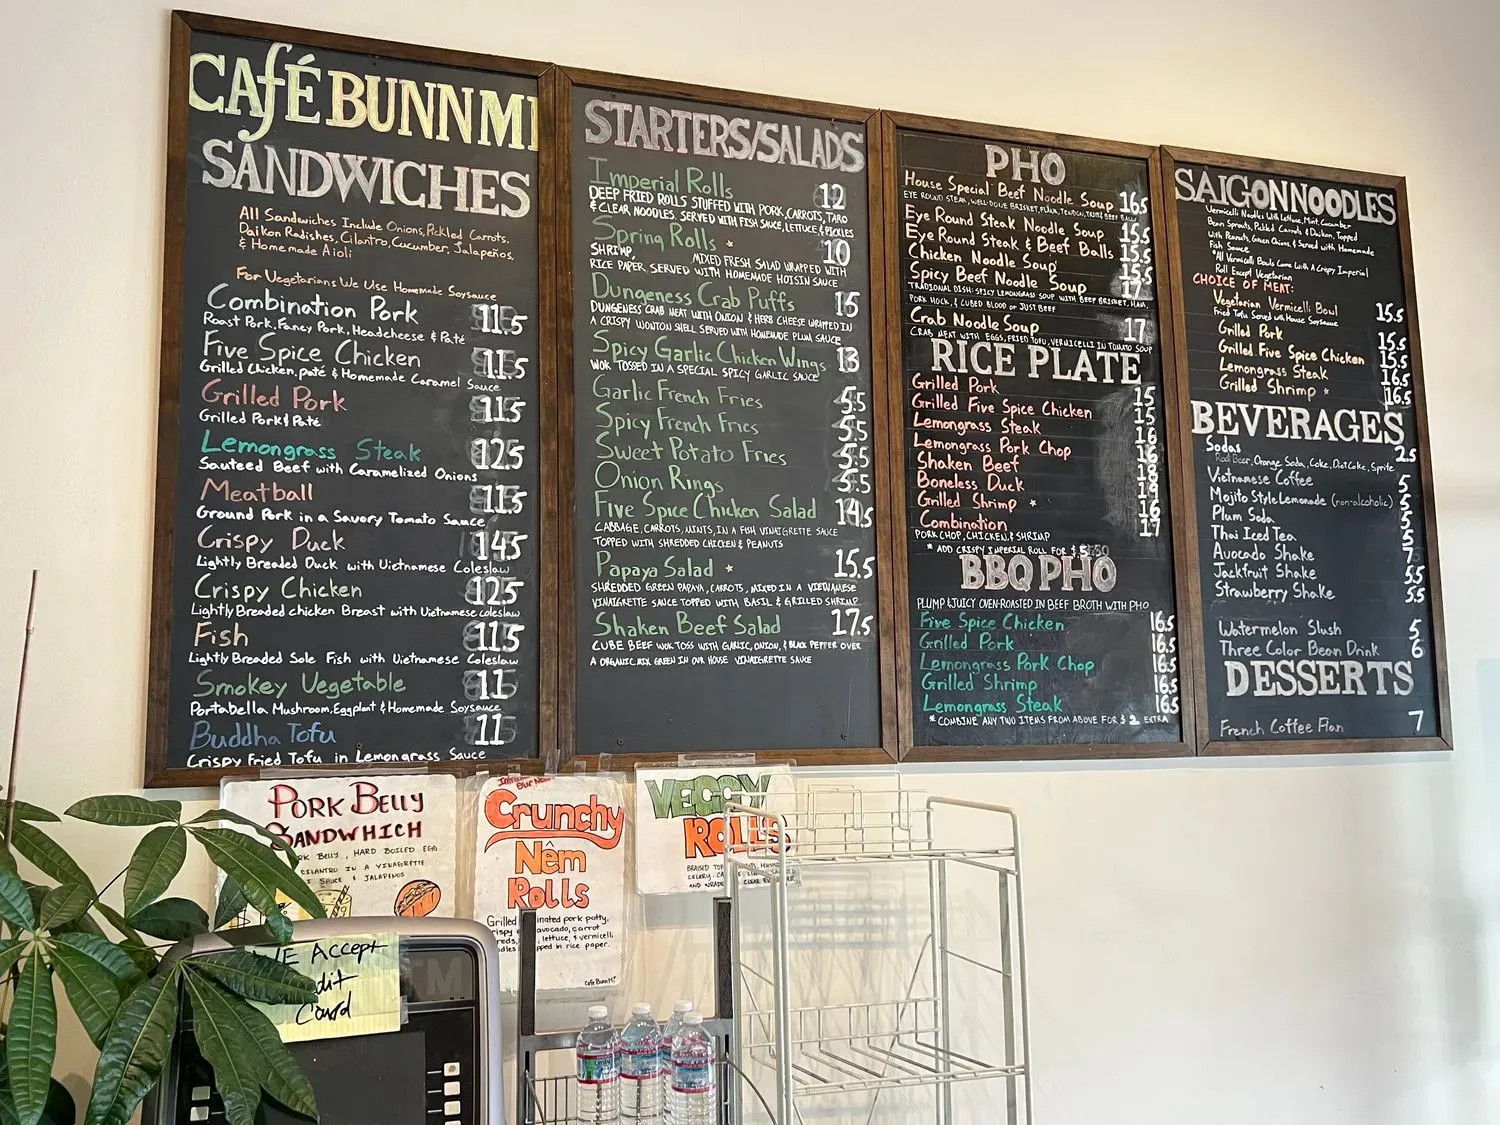 Café BUNN MI
SANDWICHES
All Sandwiches Include Onions, Pickled Carrots,
Daikon Radishes, Cilantro, Cucumber, Jalapeños,
& Homemade Aioli
For Vegetarians We Use Homemade Soysauce
Combination Pork 11.5
Roast Pork, Fancy Pork, Headcheese & Paté
Five Spice Chicken 11.5
Grilled Chicken, paté & Homemade Caramel Sauce
Grilled Pork 11.5
Grilled Pork & Paté
Lemongrass Steak 12.5
Sauteed Beef with Caramelized Onions
Meatball 11.5
Ground Pork in a Savory Tomato Sauce
Crispy Duck 14.5
Lightly Breaded Duck with Vietnamese Coleslaw
Crispy Chicken 12.5
Lightly Breaded chicken Breast with Vietnamese coleslaw
Fish 11.5
Lightly Breaded Sole Fish with Vietnamese Coleslaw
Smokey Vegetable 11
Portabella Mushroom, Eggplant & Homemade Soysauce
Buddha Tofu 11
Crispy Fried Tofu in Lemongrass Sauce
STARTERS/SALADS
Imperial Rolls 12
DEEP FRIED ROLLS STUFFED WITH PORK, CARROTS, TARO
& CLEAR NOODLES. SERVED WITH FISH SAUCE, LETTUCE & PICKLES
Spring Rolls * 10
SHRIMP, MIXED FRESH SALAD WRAPPED WITH
RICE PAPER. SERVED WITH HOMEMADE HOISIN SAUCE
Dungeness Crab Puffs 15
DUNGENESS CRAB MEAT WITH ONION & HERB CHEESE WRAPPED IN
A CRISPY WONTON SHELL SERVED WITH HOMEMADE PLUM SAUCE
Spicy Garlic Chicken Wings 13
WOK TOSSED IN A SPECIAL SPICY GARLIC SAUCE
Garlic French Fries 5.5
Spicy French Fries 5.5
Sweet Potato Fries 5.5
Onion Rings 5.5
Five Spice Chicken Salad 14.5
CABBAGE, CARROTS, MINTS, IN A FISH VINAIGRETTE SAUCE
TOPPED WITH SHREDDED CHICKEN & PEANUTS
Papaya Salad * 15.5
SHREDDED GREEN PAPAYA, CARROTS, MIXED IN A VIETNAMESE
VINAIGRETTE SAUCE TOPPED WITH BASIL & GRILLED SHRIMP
Shaken Beef Salad 17.5
CUBE BEEF WOK TOSS WITH GARLIC, ONION, & BLACK PEPPER OVER
A ORGANIC MIX GREEN IN OUR HOUSE VINAIGRETTE SAUCE
PHO
House Special Beef Noodle Soup 16.5
EYE ROUND STEAK, WELL-DONE BRISKET, FLANK, TENDON, TRIPE & BEEF BALLS
Eye Round Steak Noodle Soup 15.5
Eye Round Steak & Beef Balls 15.5
Chicken Noodle Soup 15.5
Spicy Beef Noodle Soup 17
TRADIONAL DISH: SPICY LEMONGRASS SOUP WITH BEEF BRISKET, HAM,
PORK HOCK, & CUBED BLOOD or JUST BEEF
Crab Noodle Soup 17
CRAB MEAT WITH EGGS, FRIED TOFU, VERMICELLI IN TOMATO SOUP
RICE PLATE
Grilled Pork 15
Grilled Five Spice Chicken 15
Lemongrass Steak 16
Lemongrass Pork Chop 16
Shaken Beef 18
Boneless Duck 19
Grilled Shrimp * 16
Combination 17
PORK CHOP, CHICKEN, & SHRIMP
* ADD CRISPY IMPERIAL ROLL FOR $
BBQ PHO
PLUMP & JUICY OVEN-ROASTED IN BEEF BROTH WITH PHO
Five Spice Chicken 16.5
Grilled Pork 16.5
Lemongrass Pork Chop 16.5
Grilled Shrimp 16.5
Lemongrass Steak 16.5
* COMBINE ANY TWO ITEMS FROM ABOVE FOR $2 EXTRA
SAIGON NOODLES
Vermicelli Noodles With Lettuce, Mint, Cucumber
Bean Sprouts, Pickled Carrots & Daikon, Topped
with Peanuts, Green Onions & Served with Homemade
Fish Sauce
*All Vermicelli Bowls Come With A Crispy Imperial
Roll Except Vegetarian
CHOICE OF MEAT:
Vegetarian Vermicelli Bowl 15.5
Fried Tofu Served with House Soysauce
Grilled Pork 15.5
Grilled Five Spice Chicken 15.5
Lemongrass Steak 16.5
Grilled Shrimp * 16.5
BEVERAGES
Sodas 2.5
Root Beer, Orange Soda, Coke, Diet Coke, Sprite
Vietnamese Coffee 5
Mojito Style Lemonade (non-alcoholic) 5
Plum Soda 5
Thai Iced Tea 5
Avocado Shake 7
Jackfruit Shake 5.5
Strawberry Shake 5.5
Watermelon Slush 5
Three Color Bean Drink 6
DESSERTS
French Coffee Flan 7
PORK BELLY
SANDWHICH
BELLY, HARD BOILED EGG
CILANTRO IN A VINAIGRETTE
SAUCE & JALAPINOS
Crunchy
Nêm
Rolls
Grilled pork patty,
avocado, carrot
lettuce, & vermicelli
in rice paper.
Café Bunn Mi
VEGGY
ROLLS
BRAISED
CELERY
AND CLEAR
WE Accept
Card